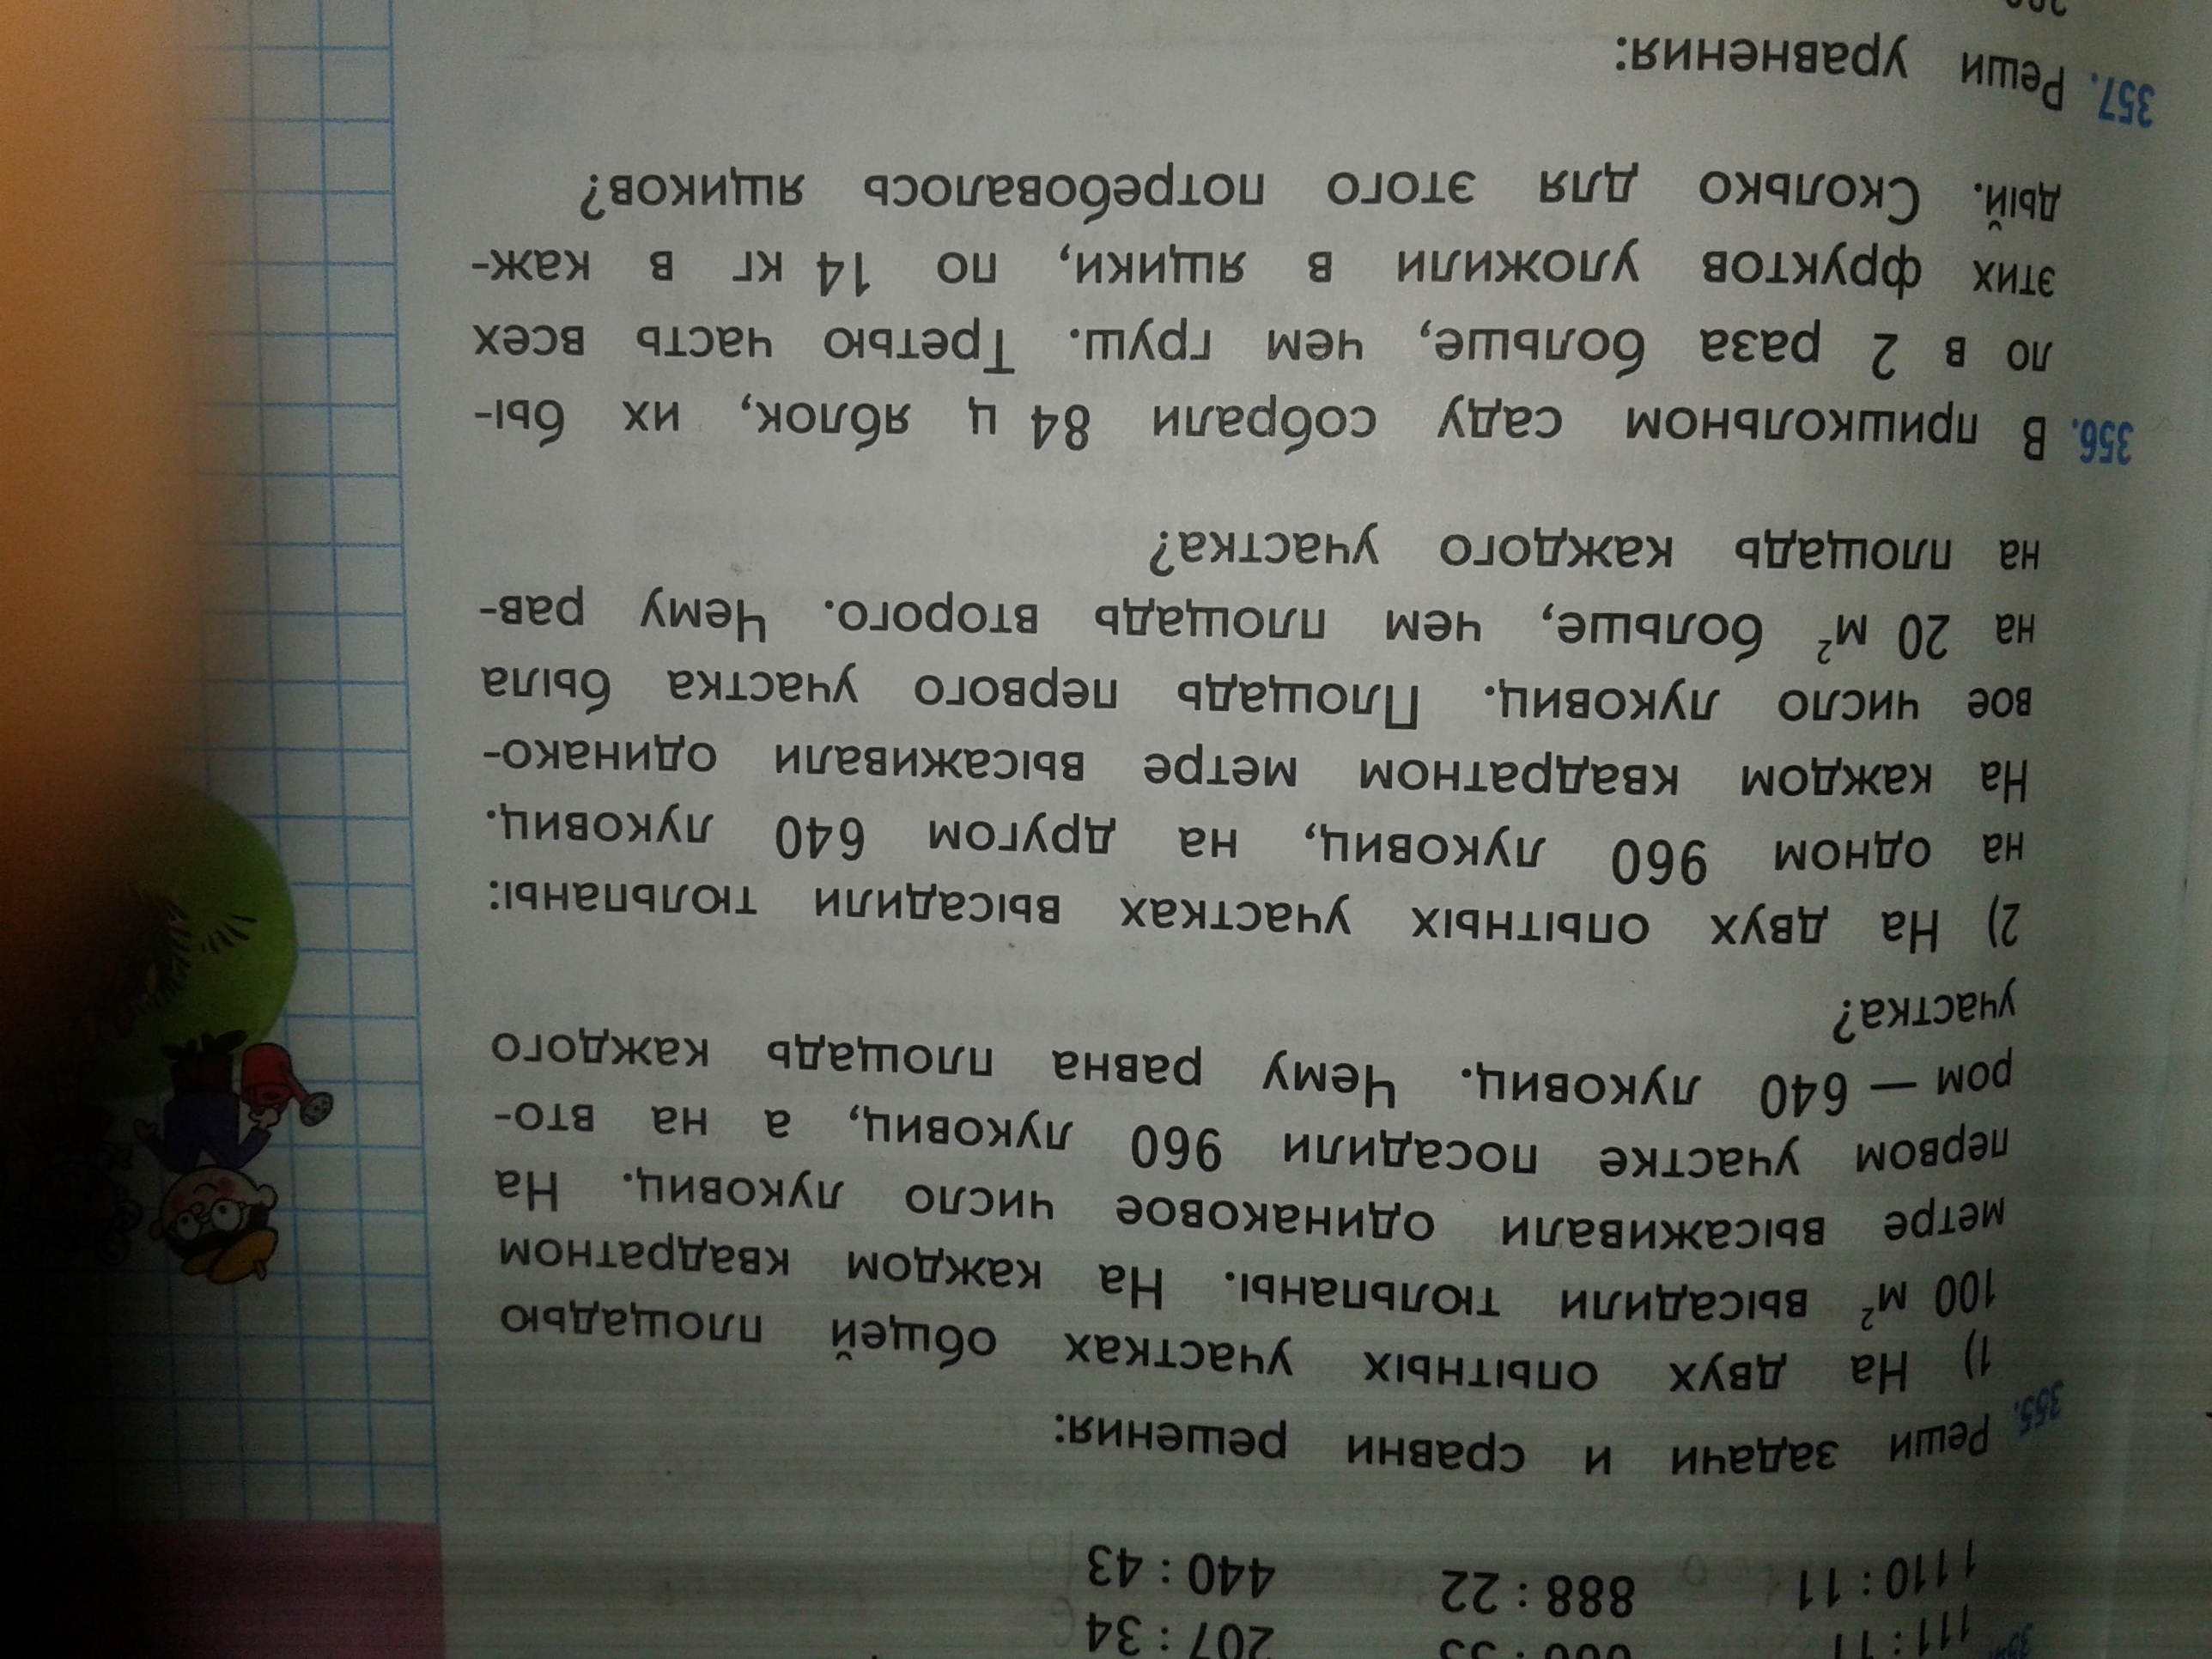 111 : 11 207 : 34
1110 : 11 888 : 22 440 : 43
355. Реши задачи и сравни решения:
1) На двух опытных участках общей площадью
100 м² высадили тюльпаны. На каждом квадратном
метре высаживали одинаковое число луковиц. На
первом участке посадили 960 луковиц, а на вто-
ром — 640 луковиц. Чему равна площадь каждого
участка?
2) На двух опытных участках высадили тюльпаны:
на одном 960 луковиц, на другом 640 луковиц.
На каждом квадратном метре высаживали одинако-
вое число луковиц. Площадь первого участка была
на 20 м² больше, чем площадь второго. Чему рав-
на площадь каждого участка?
356. В пришкольном саду собрали 84 ц яблок, их бы-
ло в 2 раза больше, чем груш. Третью часть всех
этих фруктов уложили в ящики, по 14 кг в каж-
дый. Сколько для этого потребовалось ящиков?
357. Реши уравнения: